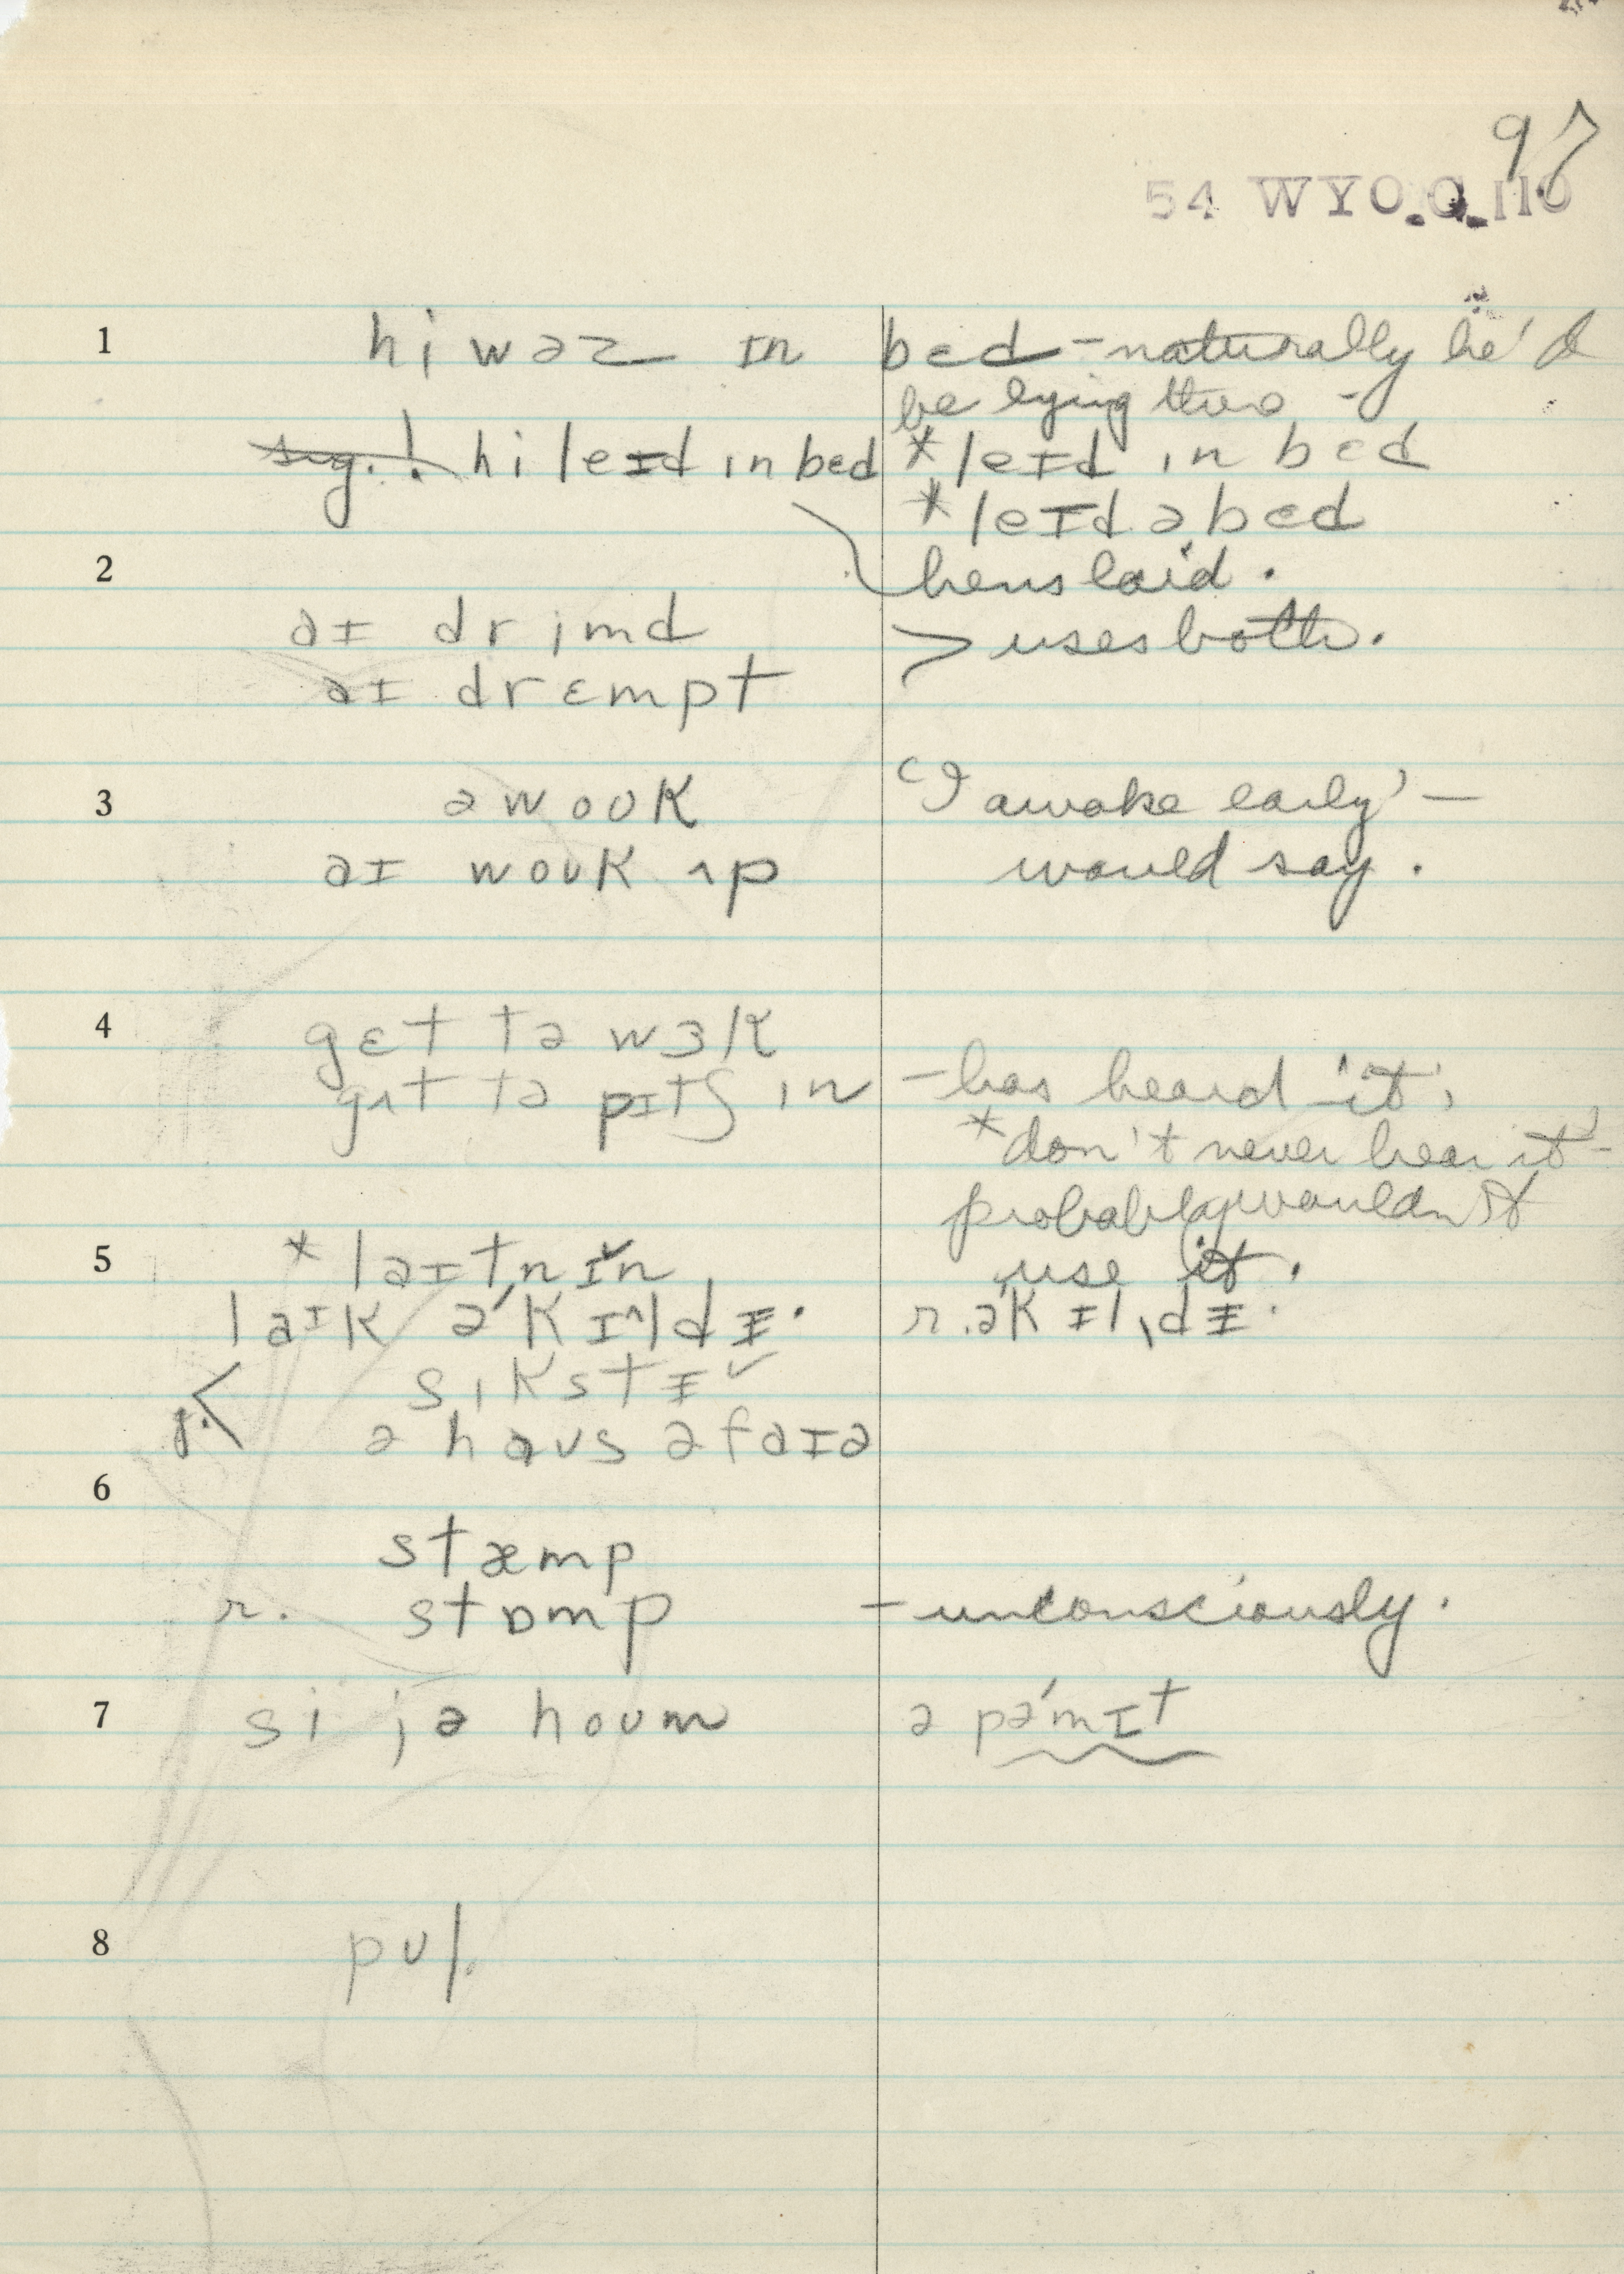 97
54 WYO. Q. 110
1 hi wəz ɪn bɛd - naturally he'd
be lying there -
sug.! hi leɪd ɪn bɛd * leɪd ɪn bɛd
* leɪd ə bɛd
2 hens laid.
aɪ drimd > uses both.
aɪ drɛmpt
3 əwoʊk 'I awake early' —
aɪ woʊk ʌp would say.
4 gɛt tə wɜk
gɪt tə pɪtʃ ɪn - has heard 'it'
* don't never hear it' -
probably wouldn't
5 * laɪtnɪn use it.
laɪk ə'kɪ^ldɪ. r. əkɪl,dɪ.
sɪkstɪ
ə haus əfaɪə
6
stæmp
r. stɒmp - unconsciously.
7 si jə hoʊm ə pə'mɪt
8 pʊl.